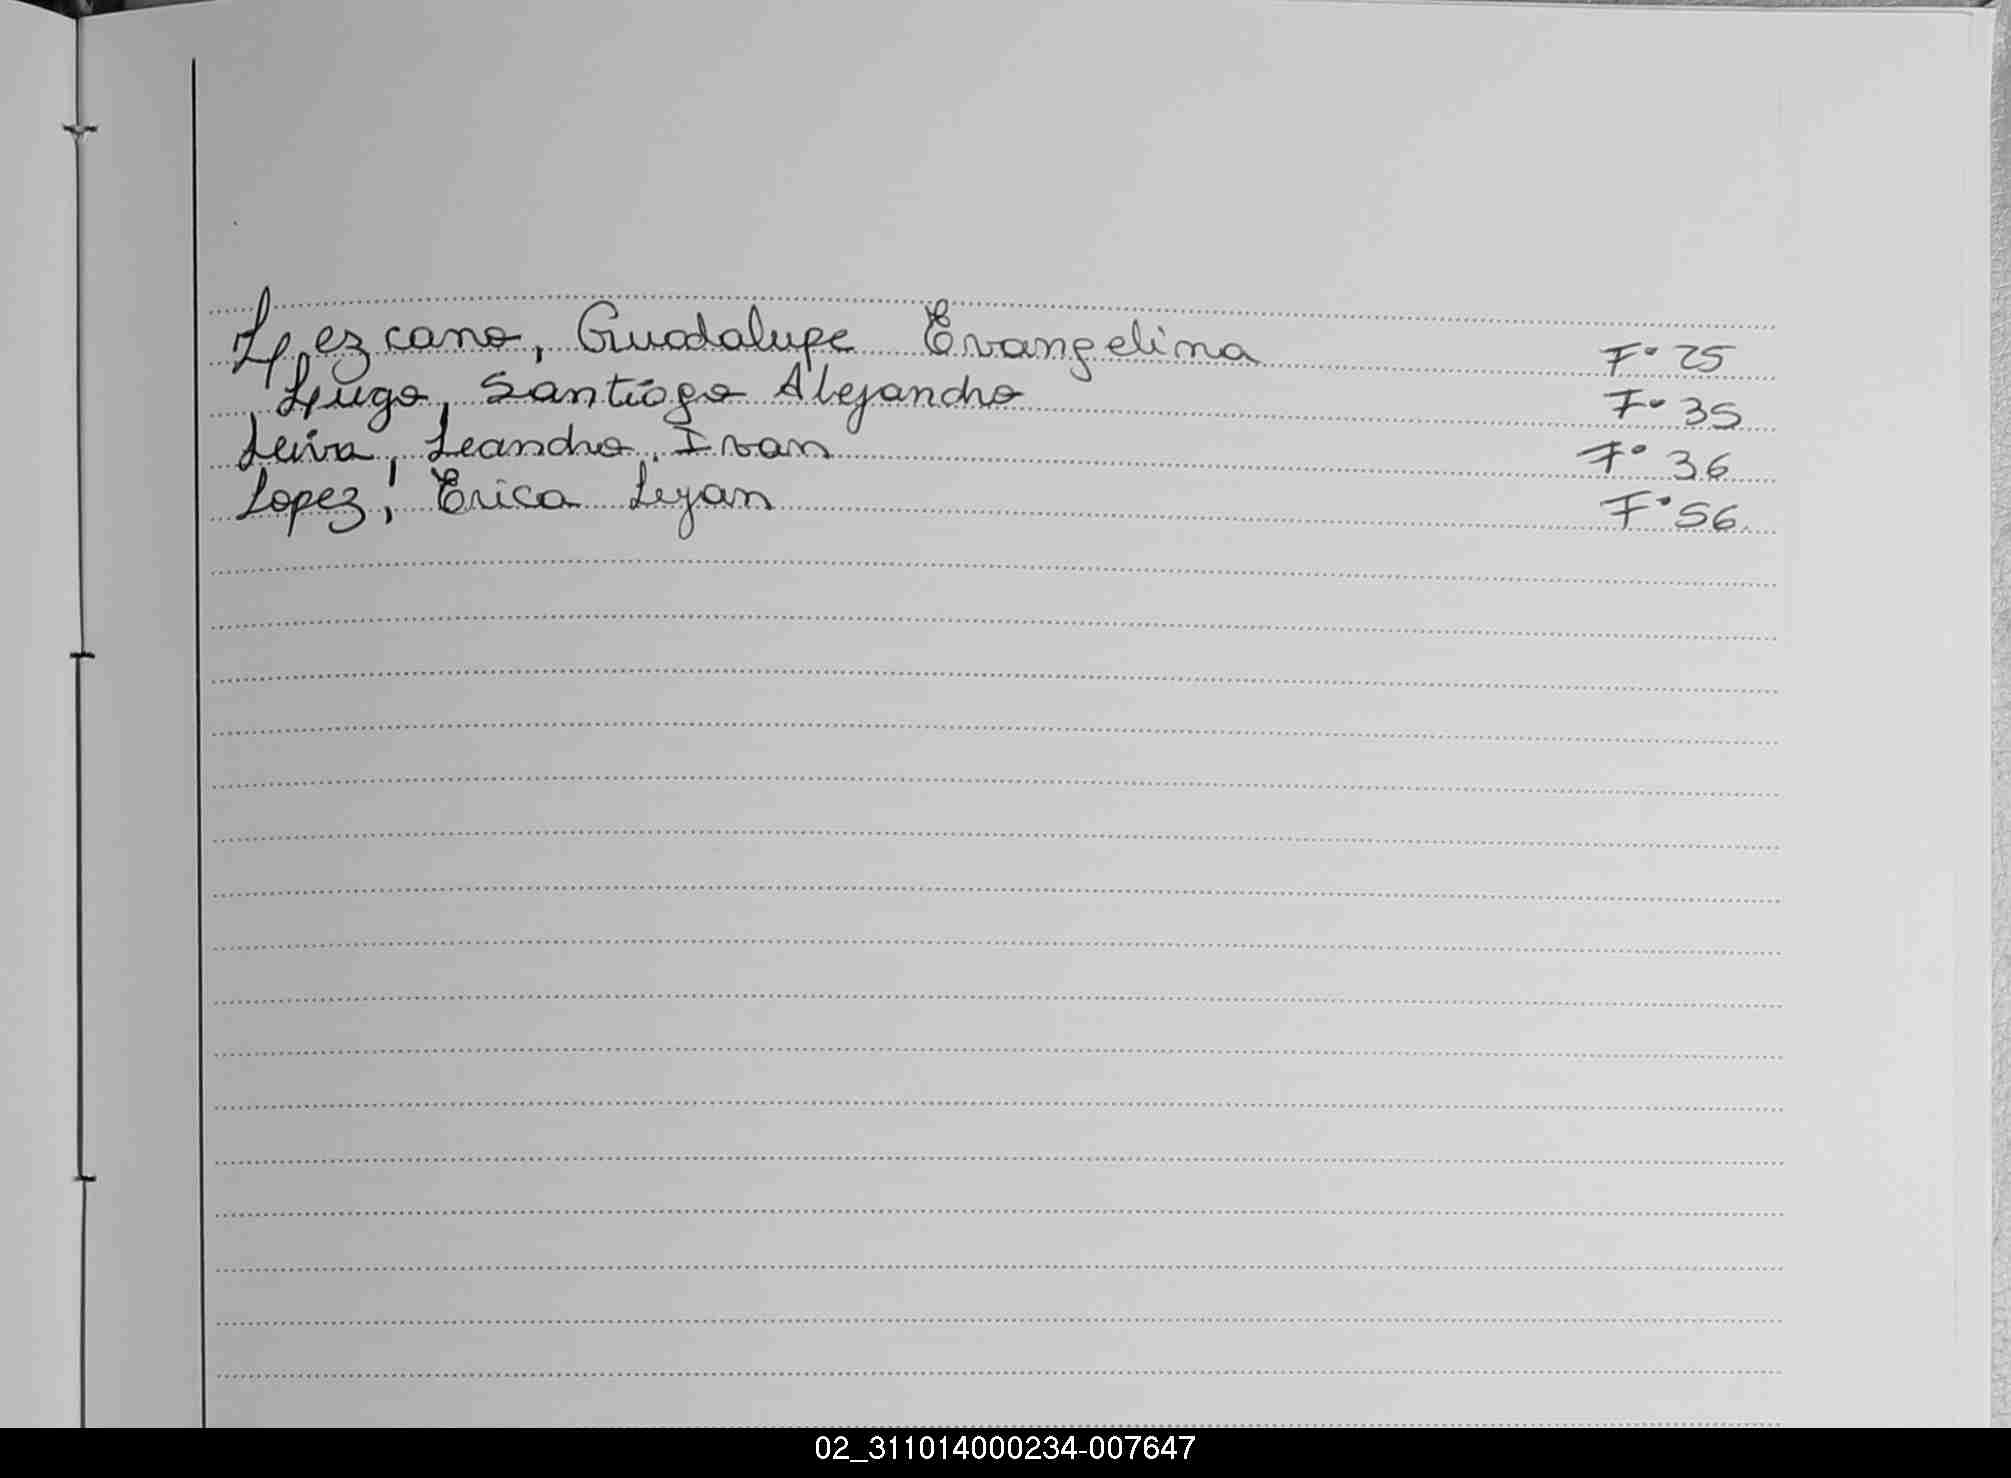 Lezcano, Guadalupe Evangelina F° 25
Lugo, Santiago Alejandro F° 35
Leiva, Leandro Ivan F° 36
Lopez, Erica Leyan F° 56
02_311014000234-007647